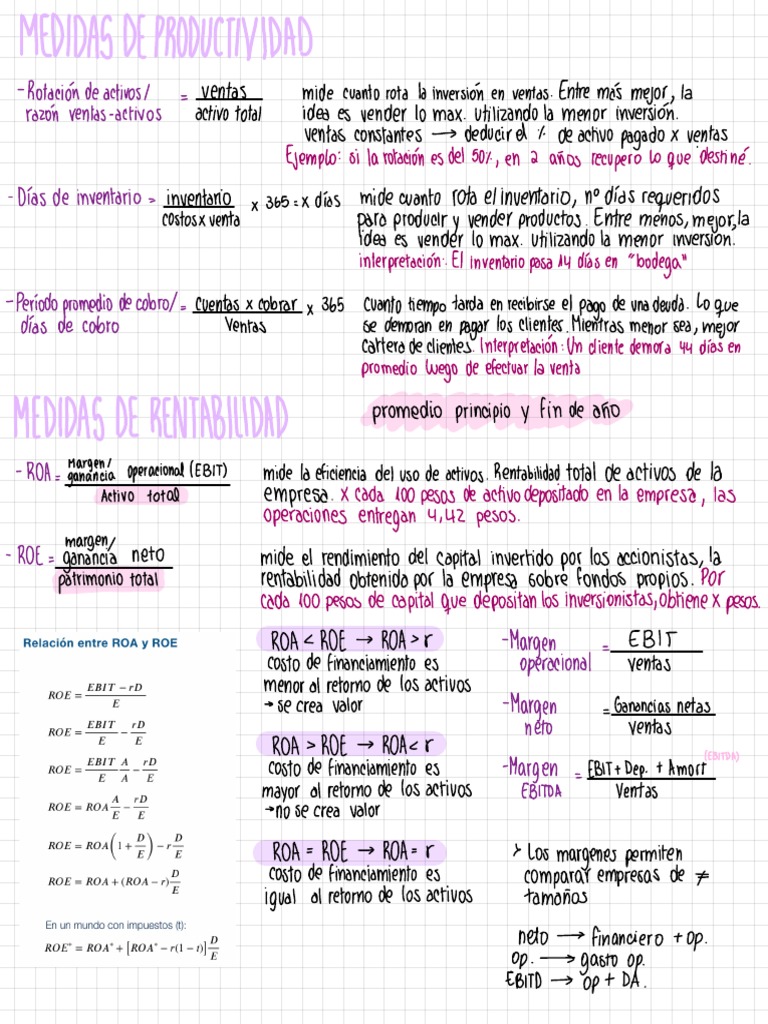 MEDIDAS DE PRODUCTIVIDAD
- Rotación de activos/
razón ventas-activos = ventas / activo total
mide cuanto rota la inversión en ventas. Entre más mejor, la
idea es vender lo max. utilizando la menor inversión.
ventas constantes → deducir el % de activo pagado x ventas
Ejemplo: si la rotación es del 50%, en 2 años recupero lo que destiné.
- Días de inventario = inventario / costos x venta x 365 = x días
mide cuanto rota el inventario, nº días requeridos
para producir y vender productos. Entre menos, mejor, la
idea es vender lo max. utilizando la menor inversión.
interpretación: El inventario pasa 14 días en "bodega"
- Período promedio de cobro/
días de cobro = cuentas x cobrar / Ventas x 365
Cuanto tiempo tarda en recibirse el pago de una deuda. Lo que
se demoran en pagar los clientes. Mientras menor sea, mejor
cartera de clientes. Interpretación: Un cliente demora 44 días en
promedio luego de efectuar la venta
promedio principio y fin de año
MEDIDAS DE RENTABILIDAD
- ROA = Margen/ganancia operacional (EBIT) / Activo total
mide la eficiencia del uso de activos. Rentabilidad total de activos de la
empresa. x cada 100 pesos de activo depositado en la empresa, las
operaciones entregan 4,42 pesos.
- ROE = margen/ganancia neto / patrimonio total
mide el rendimiento del capital invertido por los accionistas, la
rentabilidad obtenida por la empresa sobre fondos propios. Por
cada 100 pesos de capital que depositan los inversionistas, obtiene x pesos.
Relación entre ROA y ROE
ROE = (EBIT − rD) / E
ROE = EBIT / E − rD / E
ROE = EBIT / E A / A − rD / E
ROE = ROA A / E − rD / E
ROE = ROA (1 + D / E) − r D / E
ROE = ROA + (ROA − r) D / E
En un mundo con impuestos (t):
ROE* = ROA* + [ROA* − r(1 − t)] D / E
ROA < ROE → ROA > r
costo de financiamiento es
menor al retorno de los activos
→ se crea valor
ROA > ROE → ROA < r
costo de financiamiento es
mayor al retorno de los activos
→ no se crea valor
ROA = ROE → ROA = r
costo de financiamiento es
igual al retorno de los activos
- Margen
operacional = EBIT / ventas
- Margen
neto = Ganancias netas / ventas
- Margen
EBITDA = EBIT + Dep. + Amort / Ventas
(EBITDA)
> Los margenes permiten
comparar empresas de ≠
tamaños
neto → financiero + op.
op. → gasto op.
EBITD → op + DA.